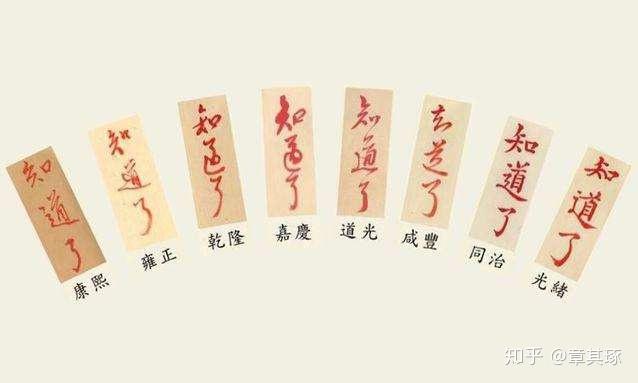 知道了
康熙
知道了
雍正
知道了
乾隆
知道了
嘉慶
知道了
道光
知道了
咸豐
知道了
同治
知道了
光緒
知乎 @章其琢